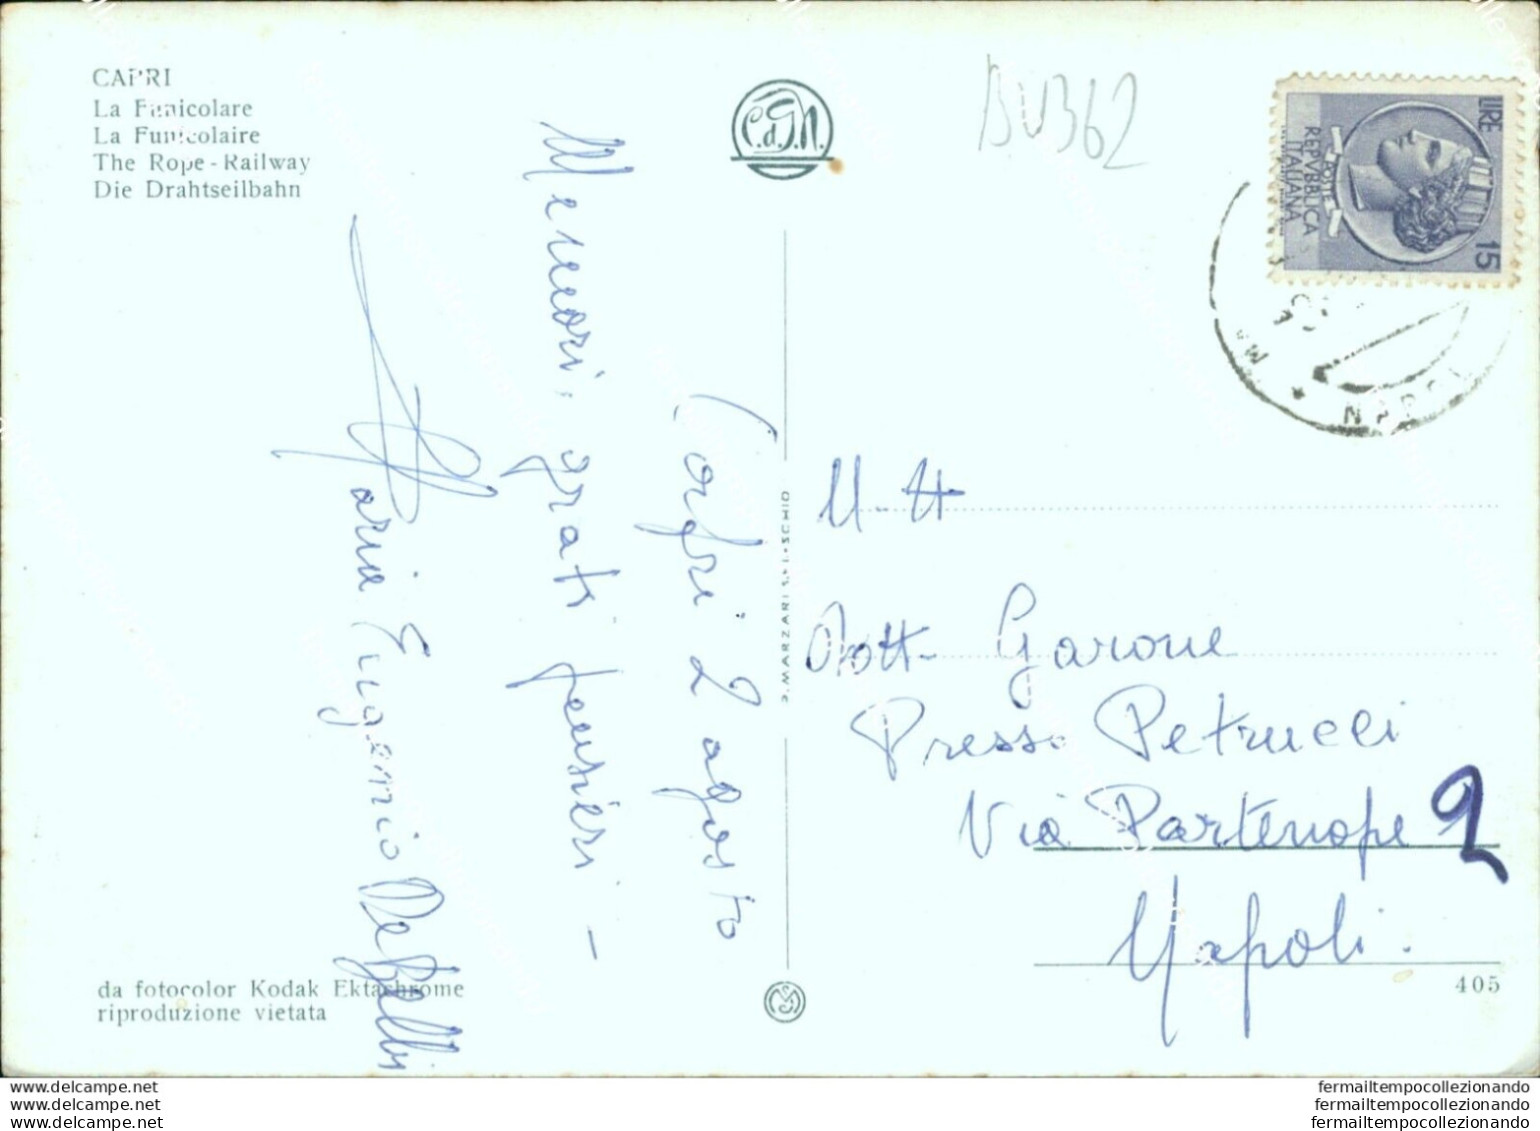 CAPRI
La Funicolare
La Funicolaire
The Rope-Railway
Die Drahtseilbahn
C.d.G.M.
BV362
LIRE 15
POSTE
REPVBBLICA
ITALIANA
NAPOLI
Capri 2 agosto
Memori, grati pensieri -
Maria Eugenio De
S. MARZARI S.r.l. - SCHIO
Dott. Garone
Presso Petrucci
Via Partenope 2
Napoli.
da fotocolor Kodak Ektachrome
riproduzione vietata
405
www.delcampe.net
www.delcampe.com
www.delcampe.net
fermailtempocollezionando
fermailtempocollezionando
fermailtempocollezionando